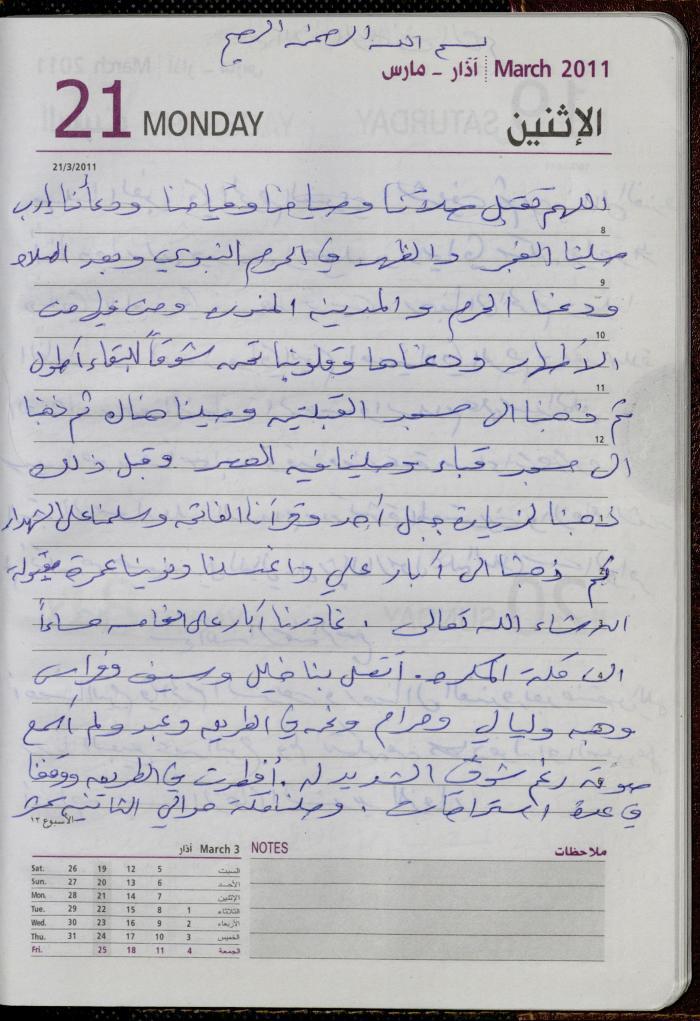 بسم الله الرحمن الرحيم
March 2011 آذار - مارس
21 MONDAY الإثنين
21/3/2011
اللهم تقبل صلاتنا وصيامنا وقيامنا ودعائنا يارب
8
صلينا الفجر والظهر في الحرم النبوي وبعد الصلاه
9
ودعنا الحرم والمدينه المنوره ومن فيها من
10
الأطهار ودعناها وقلوبنا تحن شوقاً للبقاء أطول
11
ثم ذهبنا الى مسجد القبلتين وصلينا هناك ثم ذهبنا
12
الى مسجد قباء وصلينا فيه العصر وقبل ذلك
ذهبنا لزيارة جبل أحد وقرأنا الفاتحه وسلمنا على الشهداء
ثم ذهبنا الى آبار علي واغتسلنا ونوينا عمرة مقبولة
ان شاء الله تعالى . غادرنا آبار علي الخامسه مساءاً
الى مكة المكرمه . اتصل بنا خليل وسيف وفراس
وهبه وليالي ومرام ونحن في الطريق وعبد ولم أسمع
صوته رغم شوقي الشديد له . أفطرت في الطريق ووقفنا
في عدة استراحات . وصلنا مكة حوالي الثانيه عشر
الأسبوع ١٣
March 3 آذار
Sat. 26 19 12 5 السبت
Sun. 27 20 13 6 الأحد
Mon. 28 21 14 7 الإثنين
Tue. 29 22 15 8 1 الثلاثاء
Wed. 30 23 16 9 2 الأربعاء
Thu. 31 24 17 10 3 الخميس
Fri. 25 18 11 4 الجمعة
NOTES ملاحظات